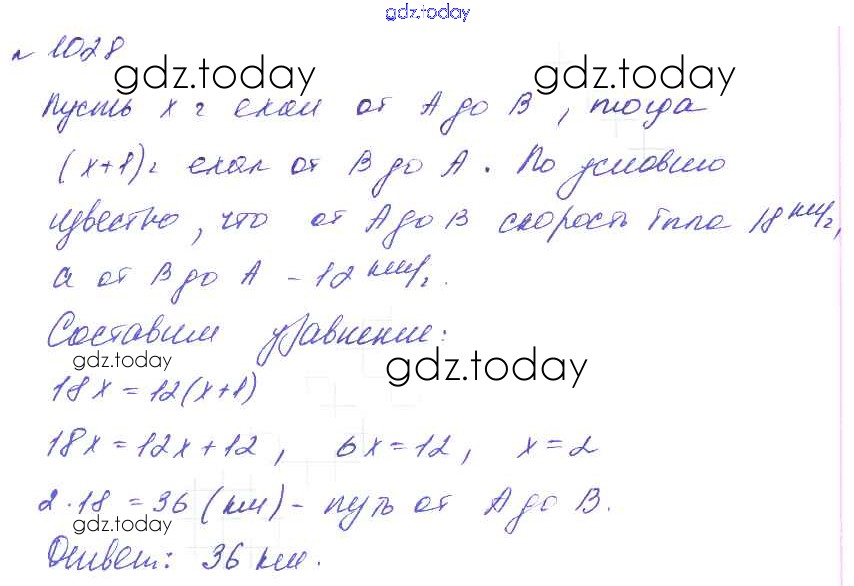 gdz.today
№ 1028
gdz.today gdz.today
Пусть x ч ехал от А до В, тогда
(x+1)ч ехал от В до А. По условию
известно, что от А до В скорость была 18 км/ч,
а от В до А - 12 км/ч.
Составим уравнение:
gdz.today gdz.today
18x = 12(x+1)
18x = 12x + 12, 6x = 12, x = 2
2·18 = 36 (км) - путь от А до В.
gdz.today
Ответ: 36 км.